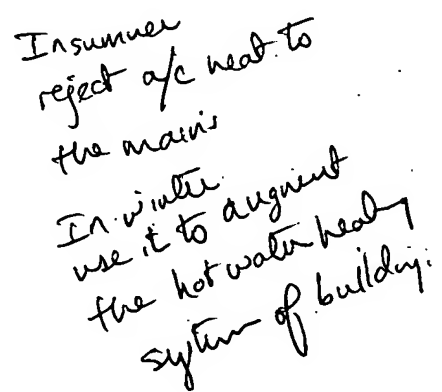 In summer
reject a/c heat to
the mains
In winter
use it to augment
the hot water heating
system of building.